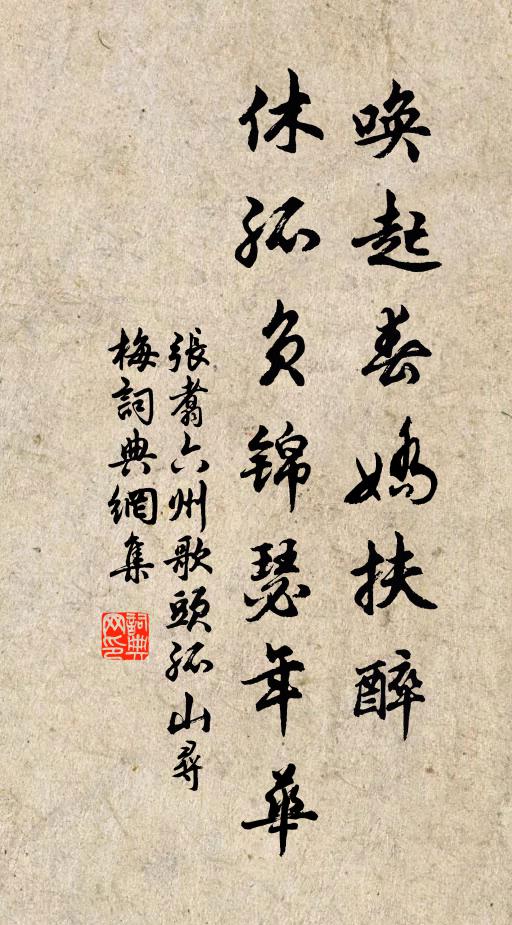 喚起春嬌扶醉
休孤負錦瑟年華
張翥六州歌頭孤山尋
梅詞典網集
詞典网印